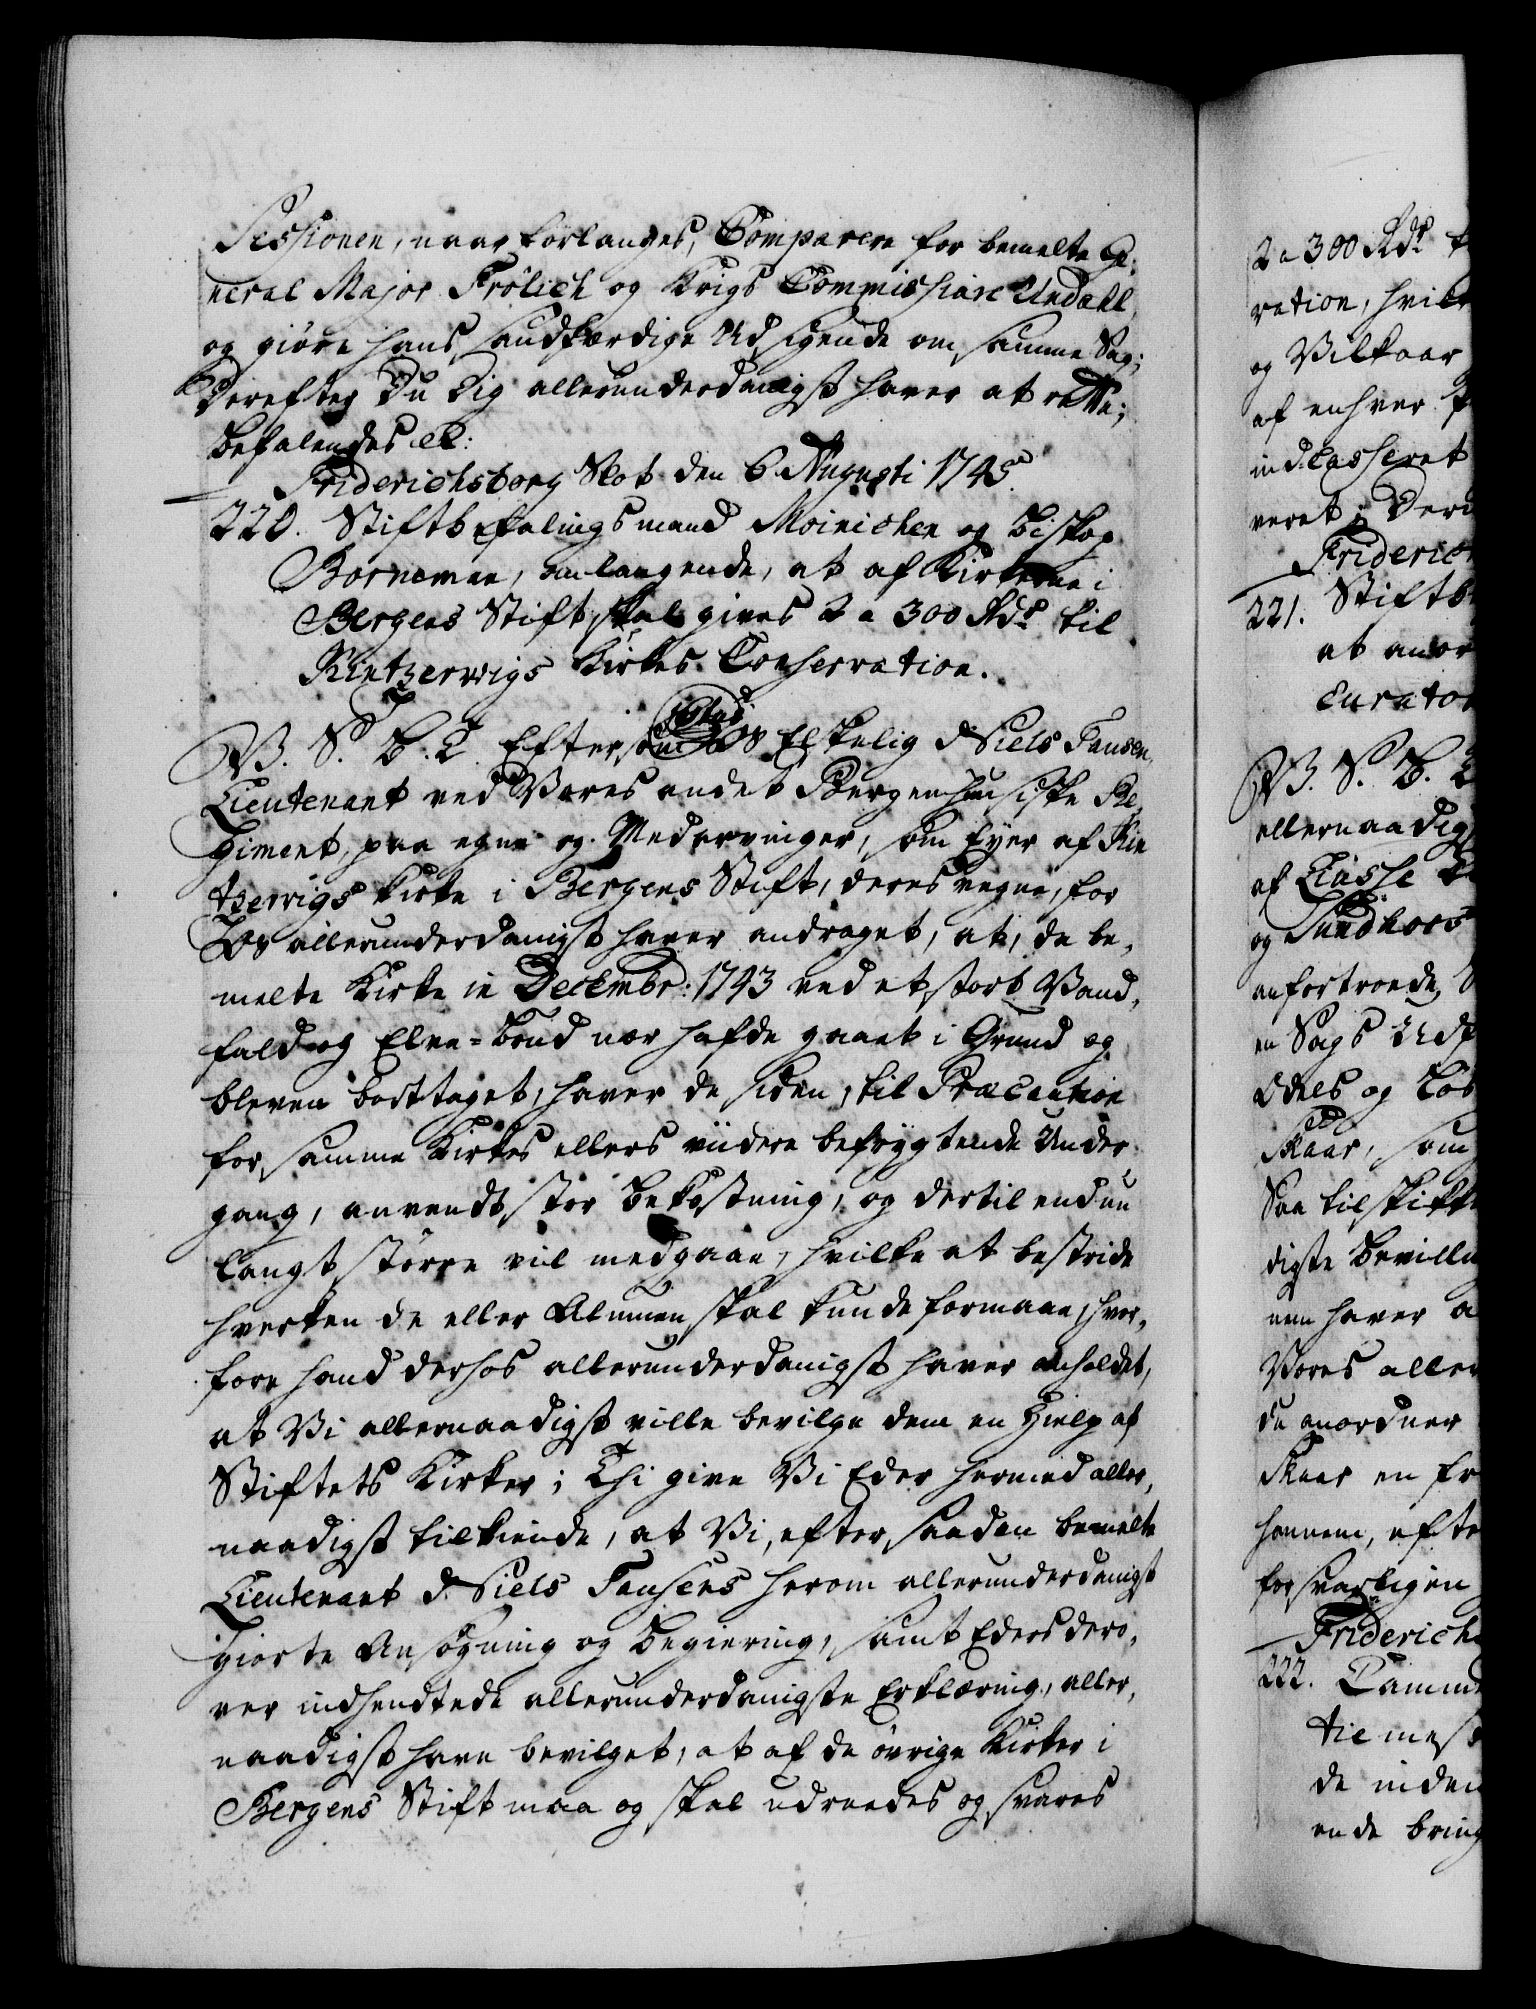 Sessionen, naar forlanges, Comparere for bemelte Ge-
neral Major Frölich og Krigs Commissiare Undahl,
og giöre hans sandfærdige Udsigende om samme Sag;
Derefter Du dig allerunderdanigst haver at rette;
Befalendes etc:
Friderichsborg Slot den 6 Augusti 1745.
220. Stiftbefalingsmand Moinichen og Biskop
Borneman, anlangende, at af Kirkerne i
Bergens Stift skal gives 2 a 300 Rdr til
Kintzerwigs Kirkes Conservation.
V. S. B. T. Eftersom Os Elskelig Niels Jansen,
Lieutenant ved Vores andet Bergenhusiske Re-
giment, paa egne og Medarvinger, som Eyer af Kin
tzerwigs Kirke i Bergens Stift, deres vegne, for
Os allerunderdanigst haver andraget, at, da be-
melte Kirke in Decembr: 1743 ved et stort Vand-
fald og Elve-Brud nær hafde gaaet i Grund og
bleven borttaget, haver de siden, til Præcaution
for samme Kirkes ellers viidere befrygtende Under-
gang, anvendt stor Bekostning, og dertil endnu
langt större vil medgaae, hvilke at bestride
hverken de eller Almuen skal kunde formaae, hvor-
fore hand derhos allerunderdanigst haver anholdet,
at Vi allernaadigst ville bevilge dem en Hielp af
Stiftets Kirker; Thi give Vi Eder hermed aller-
naadigst tilkiende, at Vi, efter saadan bemelte
Lieutenant Niels Jansens herom allerunderdanigst
giorte Ansögning og Begiering, samt Eders dero-
ver indsendtede allerunderdanigste Erklæring, aller-
naadigst have bevilget, at af de övrige Kirker i
Bergens Stift maa og skal udreedes og svares
2 a 300 Rdr
ration, hvilke
og Vilkaar
af enhver
ind Casseret
veret; Der
Friderich
221. Stiftb
at anor
Curator
V. S. B. T
allernaadig
af Classe
og Sundhors
anfortroede
en Sags Udf
Odels og Lös
Skaar, som
Saa tilskikke
digste Bevilln
nem haver a
Vores aller
du anordner
Skaar en fr
hannem, efte
forsvarligen
Friderich
222. Camme
til mes
de inden
ende bring